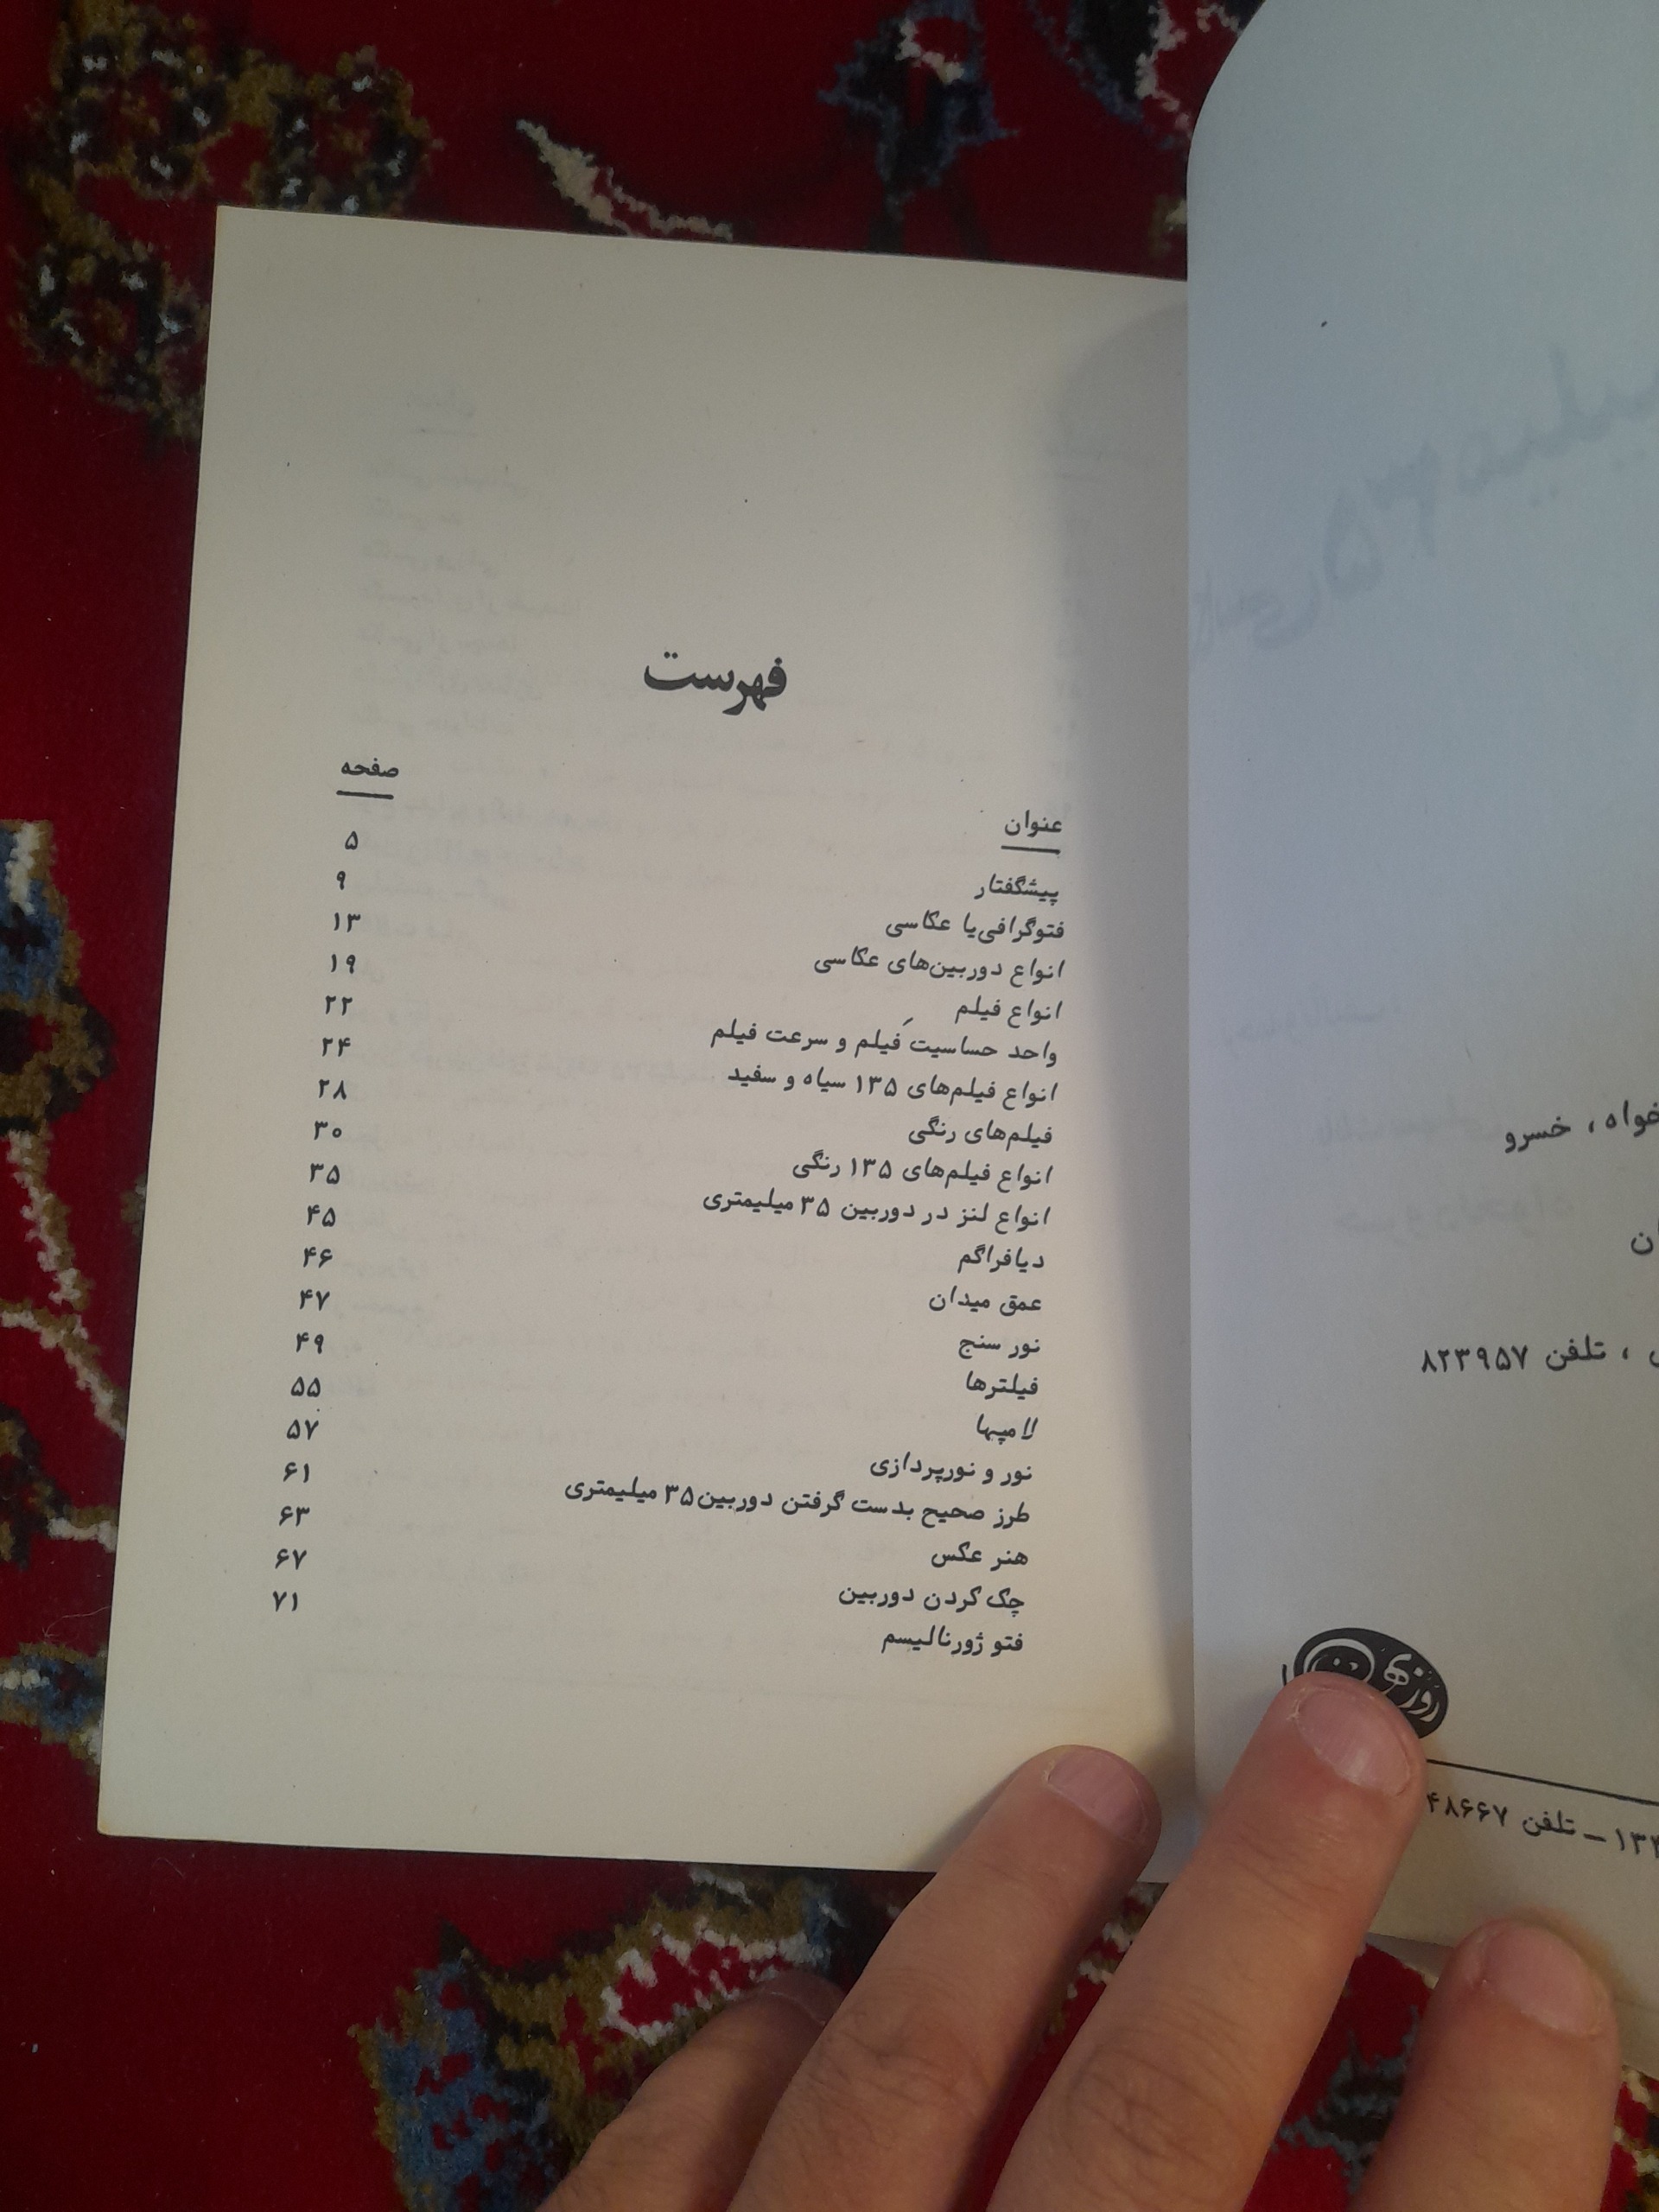 فهرست
عنوان صفحه
پیشگفتار ۵
فتوگرافی‌یا عکاسی ۹
انواع دوربین‌های عکاسی ۱۳
انواع فیلم ۱۹
واحد حساسیت فیلم و سرعت فیلم ۲۲
انواع فیلم‌های ۱۳۵ سیاه و سفید ۲۴
فیلم‌های رنگی ۲۸
انواع فیلم‌های ۱۳۵ رنگی ۳۰
انواع لنز در دوربین ۳۵ میلیمتری ۳۵
دیافراگم ۴۵
عمق میدان ۴۶
نور سنج ۴۷
فیلترها ۴۹
لامپها ۵۵
نور و نورپردازی ۵۷
طرز صحیح بدست گرفتن دوربین ۳۵ میلیمتری ۶۱
هنر عکس ۶۳
چک کردن دوربین ۶۷
فتو ژورنالیسم ۷۱
خواه ، خسرو
ان
، تلفن ۸۲۳۹۵۷
روزبهان
— تلفن ۴۸۶۶۷